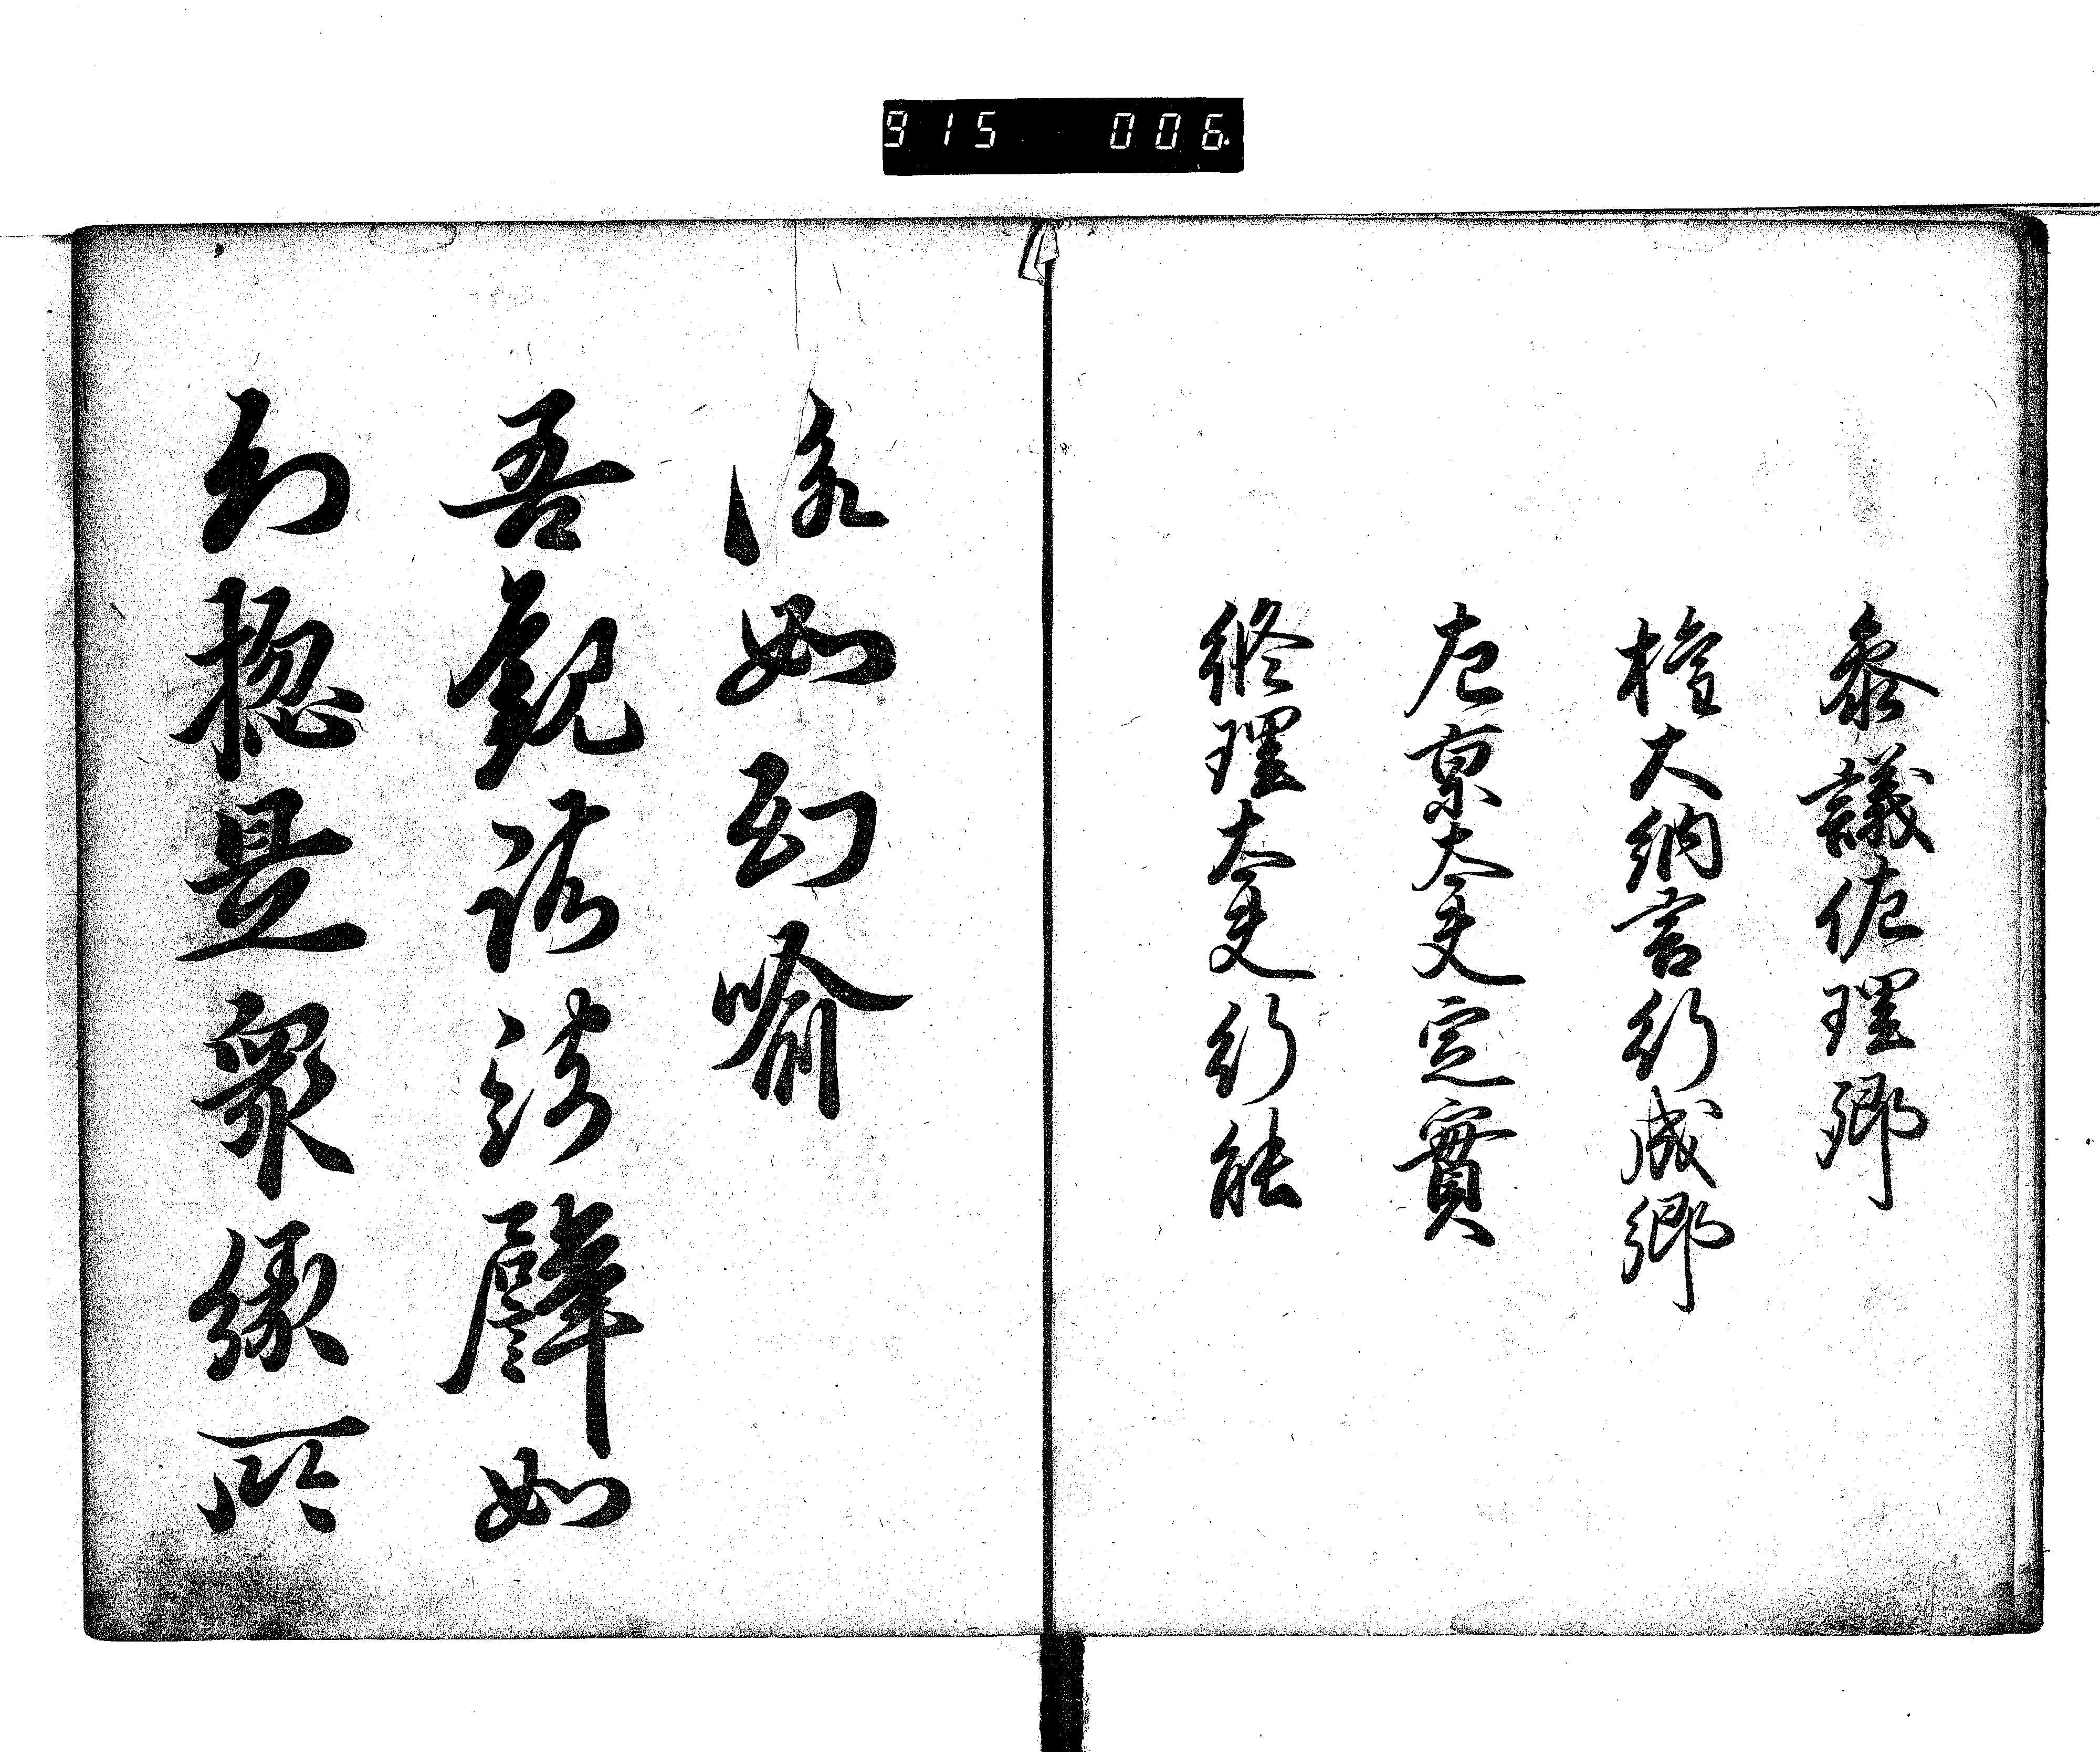 915 006
叅議佐理卿
權大納言行成卿
左京大夫定實
修理大夫行能
詠如幻喩
吾觀諸法譬如
幻揔是衆縁所